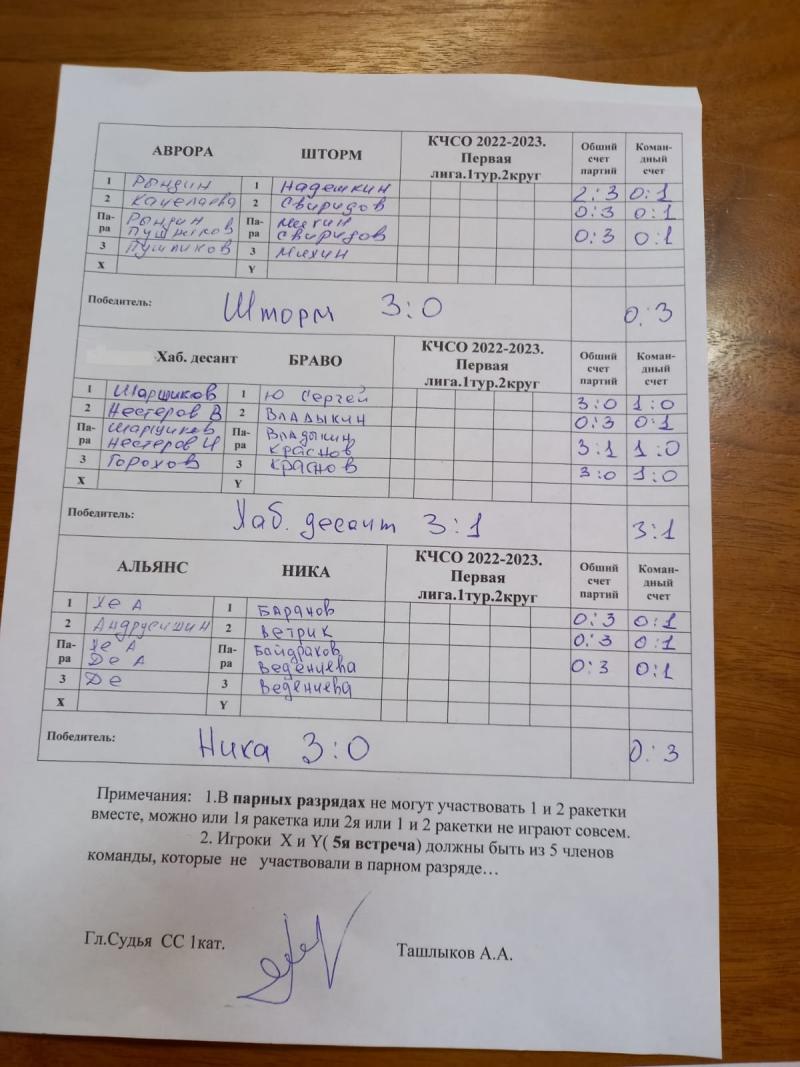 АВРОРА ШТОРМ КЧСО 2022-2023. Первая лига.1тур.2круг Общий счет партий Коман-дный счет
1 Рындин 1 Надежкин 2:3 0:1
2 2 Свиридов 0:3 0:1
Па-ра Рындин Па-ра Мякин
Пушников Свиридов 0:3 0:1
3 Пушников 3 Мякин
X Y
Победитель: Шторм 3:0 0:3
Хаб. десант БРАВО КЧСО 2022-2023. Первая лига.1тур.2круг Общий счет партий Коман-дный счет
1 Шаршиков 1 Ю Сергей 3:0 1:0
2 Нестеров В 2 Владыкин 0:3 0:1
Па-ра Шаршиков Па-ра Владыкин
Нестеров И Краснов 3:1 1:0
3 Горохов 3 Краснов 3:0 1:0
X Y
Победитель: Хаб. десант 3:1 3:1
АЛЬЯНС НИКА КЧСО 2022-2023. Первая лига.1тур.2круг Общий счет партий Коман-дный счет
1 Хе А 1 Баранов 0:3 0:1
2 Андрусишин 2 Ветрик 0:3 0:1
Па-ра Хе А Па-ра Байдраков
Де А Веденцева 0:3 0:1
3 Де 3 Веденцева
X Y
Победитель: Ника 3:0 0:3
Примечания: 1.В парных разрядах не могут участвовать 1 и 2 ракетки
вместе, можно или 1я ракетка или 2я или 1 и 2 ракетки не играют совсем.
2. Игроки X и Y( 5я встреча) должны быть из 5 членов
команды, которые не участвовали в парном разряде…
Гл.Судья СС 1кат. Ташлыков А.А.